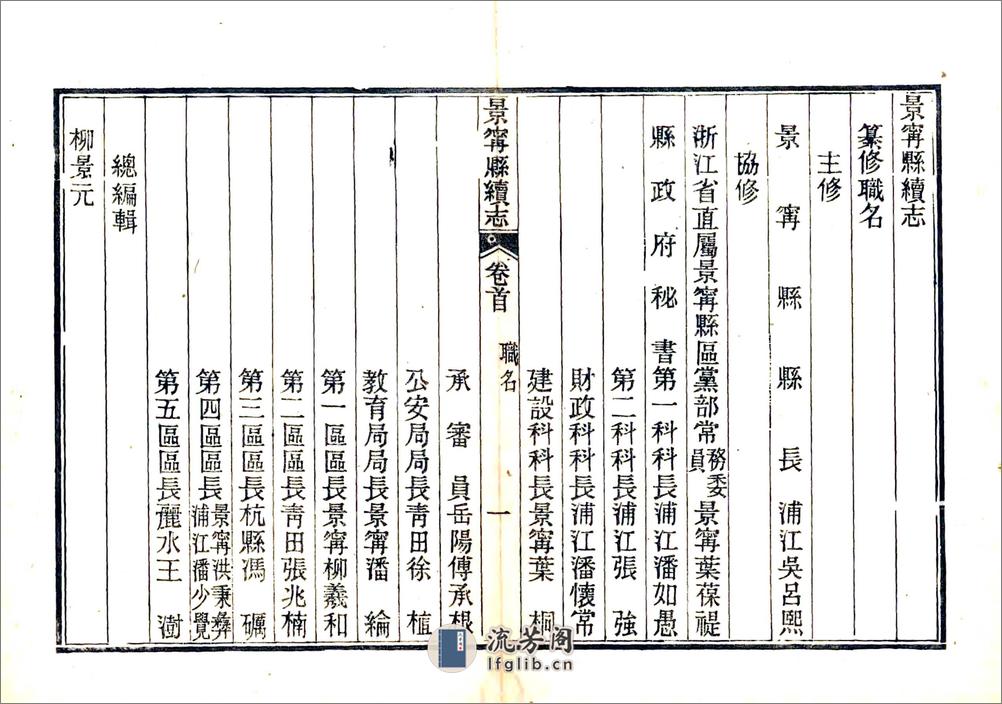 景寧縣續志
纂修職名
主修
景寧縣縣長浦江吳呂熙
協修
浙江省直屬景寧縣區黨部常務委員景寧葉葆禔
縣政府秘書第一科科長浦江潘如愚
第二科科長浦江張強
財政科科長浦江潘懷常
建設科科長景寧葉桐
景寧縣續志 卷首 職名 一
承審員岳陽傅承根
公安局局長青田徐植
教育局局長景寧潘綸
第一區區長景寧柳羲和
第二區區長青田張兆楠
第三區區長杭縣馮礪
第四區區長景寧洪秉彝浦江潘少覺
第五區區長麗水王澍
總編輯
柳景元
流芳阁
lfglib.cn